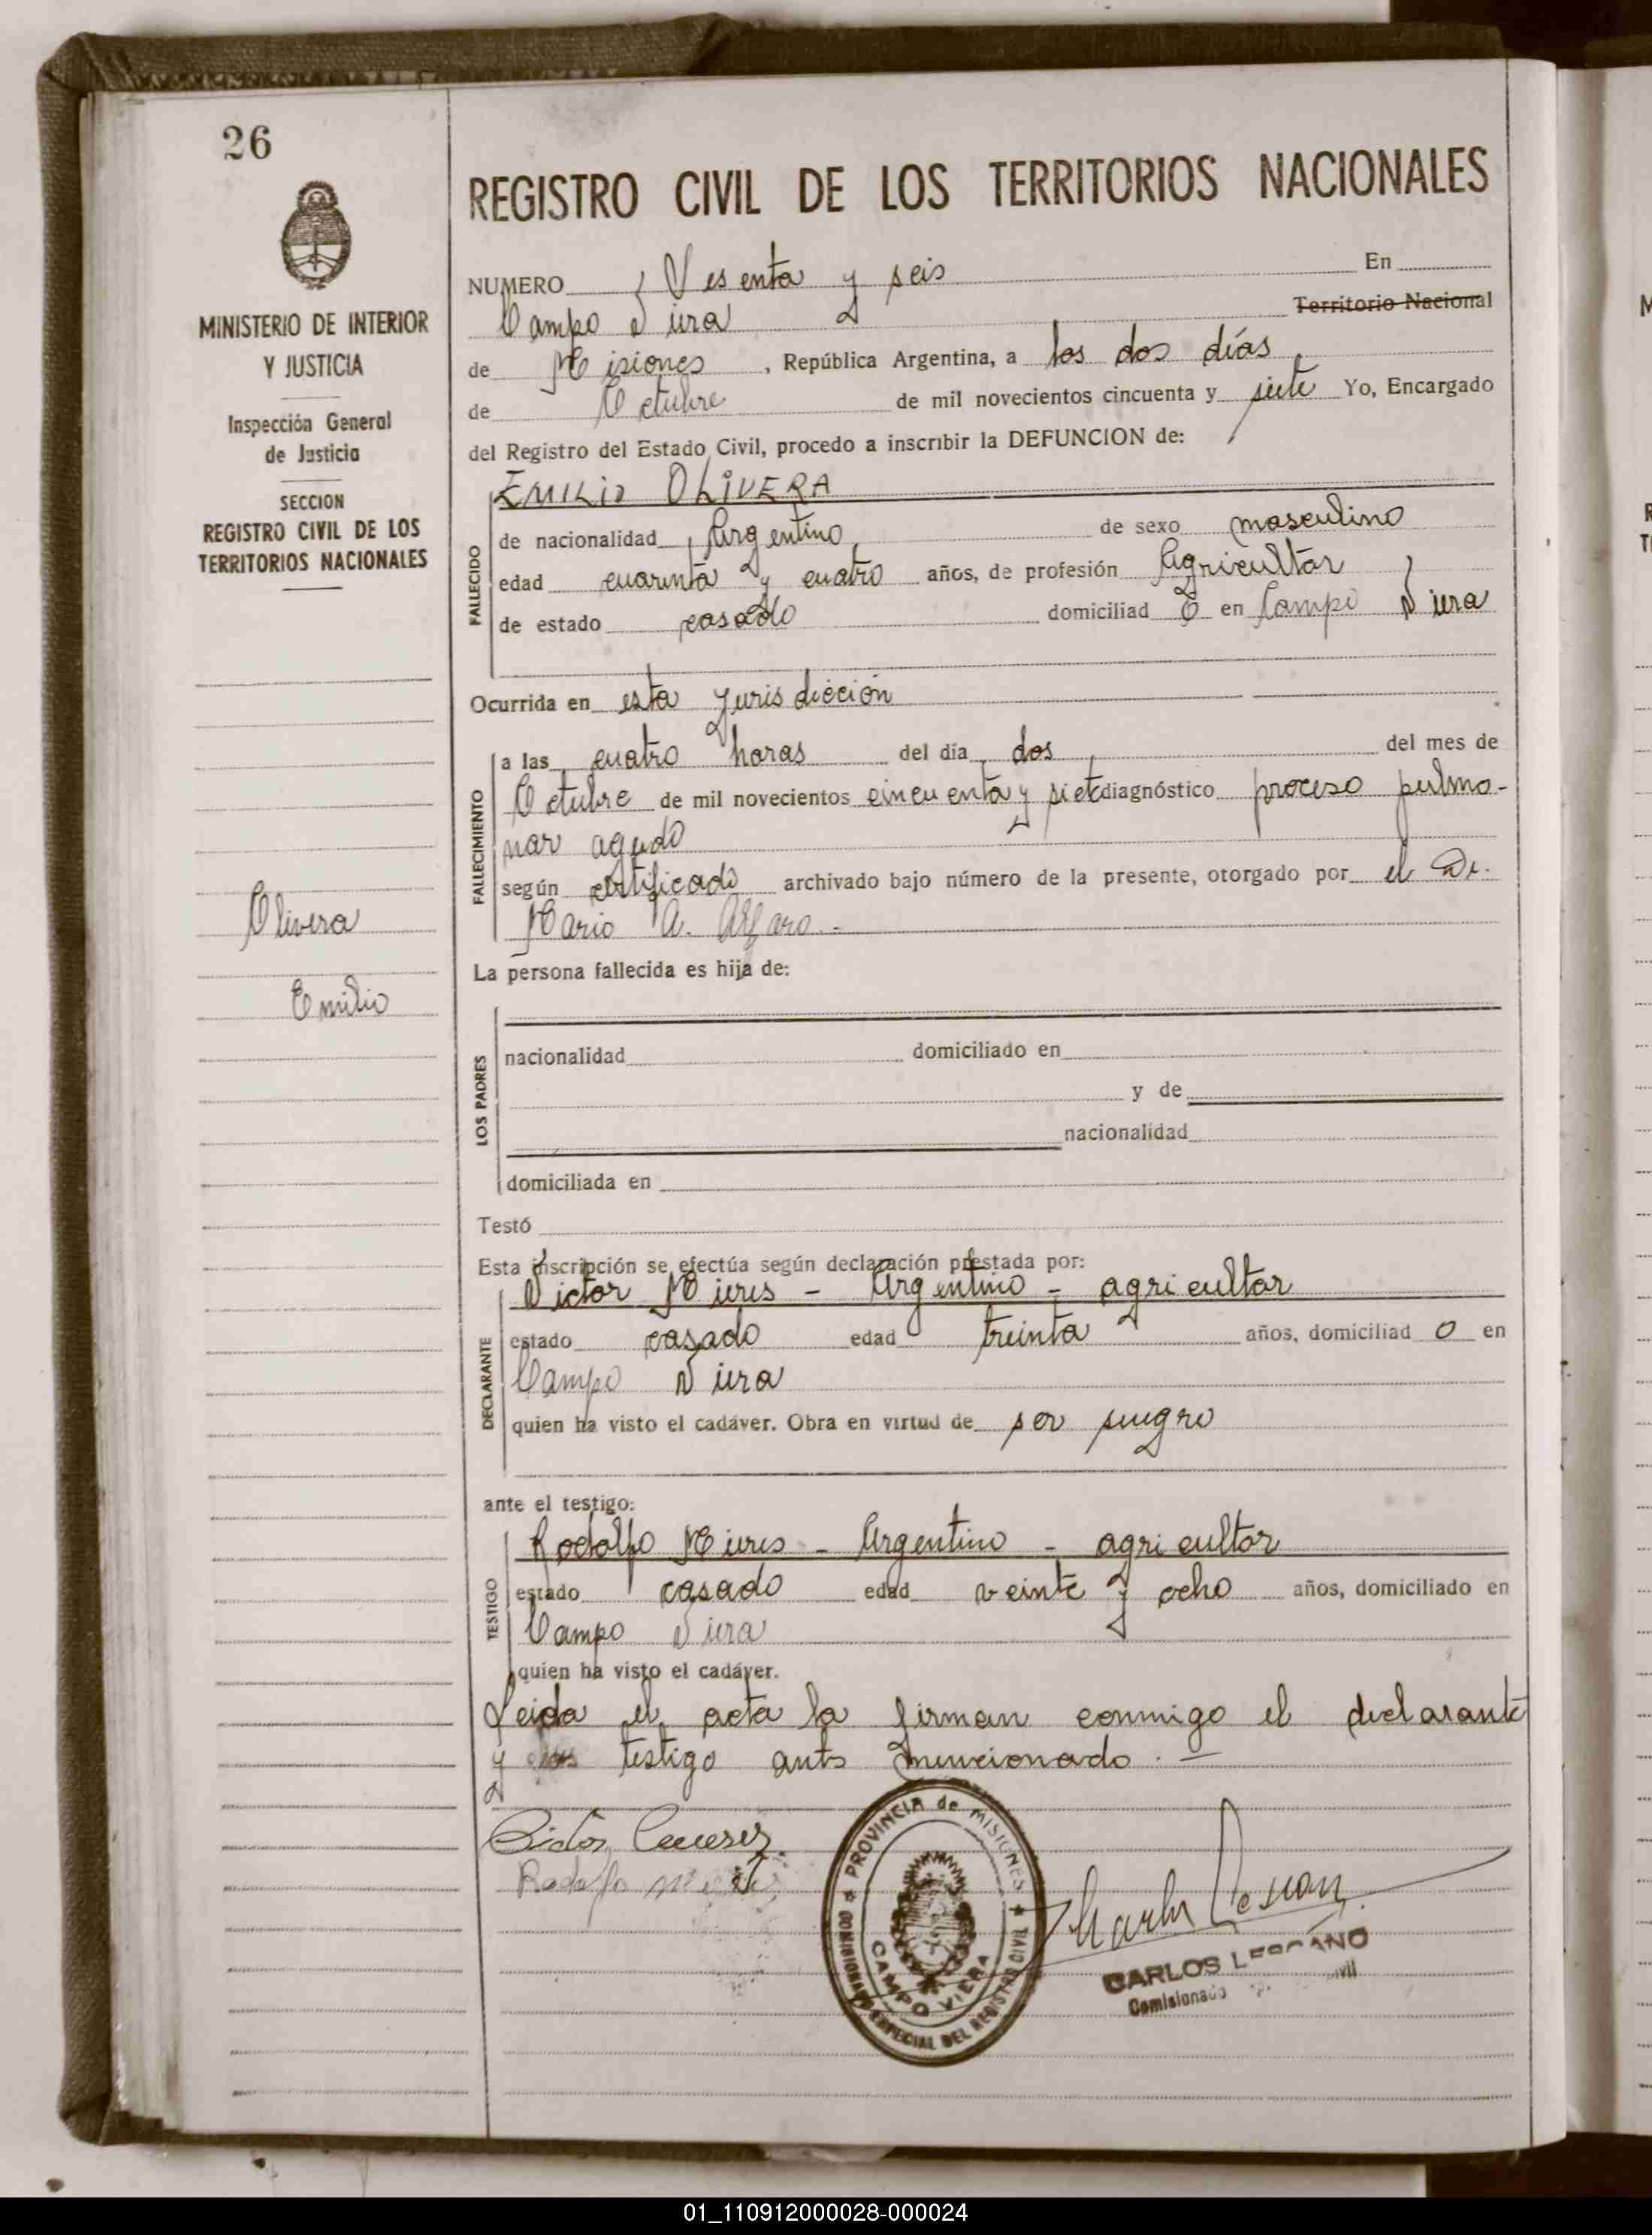 26
MINISTERIO DE INTERIOR
Y JUSTICIA
Inspección General
de Justicia
SECCION
REGISTRO CIVIL DE LOS
TERRITORIOS NACIONALES
Olivera
Emilio
REGISTRO CIVIL DE LOS TERRITORIOS NACIONALES
NUMERO Sesenta y seis En
Campo Viera Territorio Nacional
de Misiones, República Argentina, a los dos días
de Octubre de mil novecientos cincuenta y siete Yo, Encargado
del Registro del Estado Civil, procedo a inscribir la DEFUNCION de:
EMILIO OLIVERA
FALLECIDO
de nacionalidad Argentino de sexo masculino
edad cuarenta y cuatro años, de profesión Agricultor
de estado casado domiciliad o en Campo Viera
Ocurrida en esta jurisdicción
FALLECIMIENTO
a las cuatro horas del día dos del mes de
Octubre de mil novecientos cincuenta y siete diagnóstico proceso pulmo-
nar agudo
según certificado archivado bajo número de la presente, otorgado por el Dr.
Mario A. Alfaro.-
La persona fallecida es hija de:
LOS PADRES
nacionalidad domiciliado en
y de
nacionalidad
domiciliada en
Testó
Esta inscripción se efectúa según declaración prestada por:
DECLARANTE
Victor Mieres - Argentino - agricultor
estado casado edad treinta años, domiciliad o en
Campo Viera
quien ha visto el cadáver. Obra en virtud de ser suegro
ante el testigo:
TESTIGO
Rodolfo Mieres - Argentino - agricultor
estado casado edad veinte y ocho años, domiciliado en
Campo Viera
quien ha visto el cadáver.
Leida el acta la firman conmigo el declarante
y testigo antes mencionado.-
Rodolfo
PROVINCIA de MISIONES
COMISIONADO ESPECIAL DEL REGISTRO CIVIL
CAMPO VIERA
CARLOS LESCANO
Comisionado
01_110912000028-000024